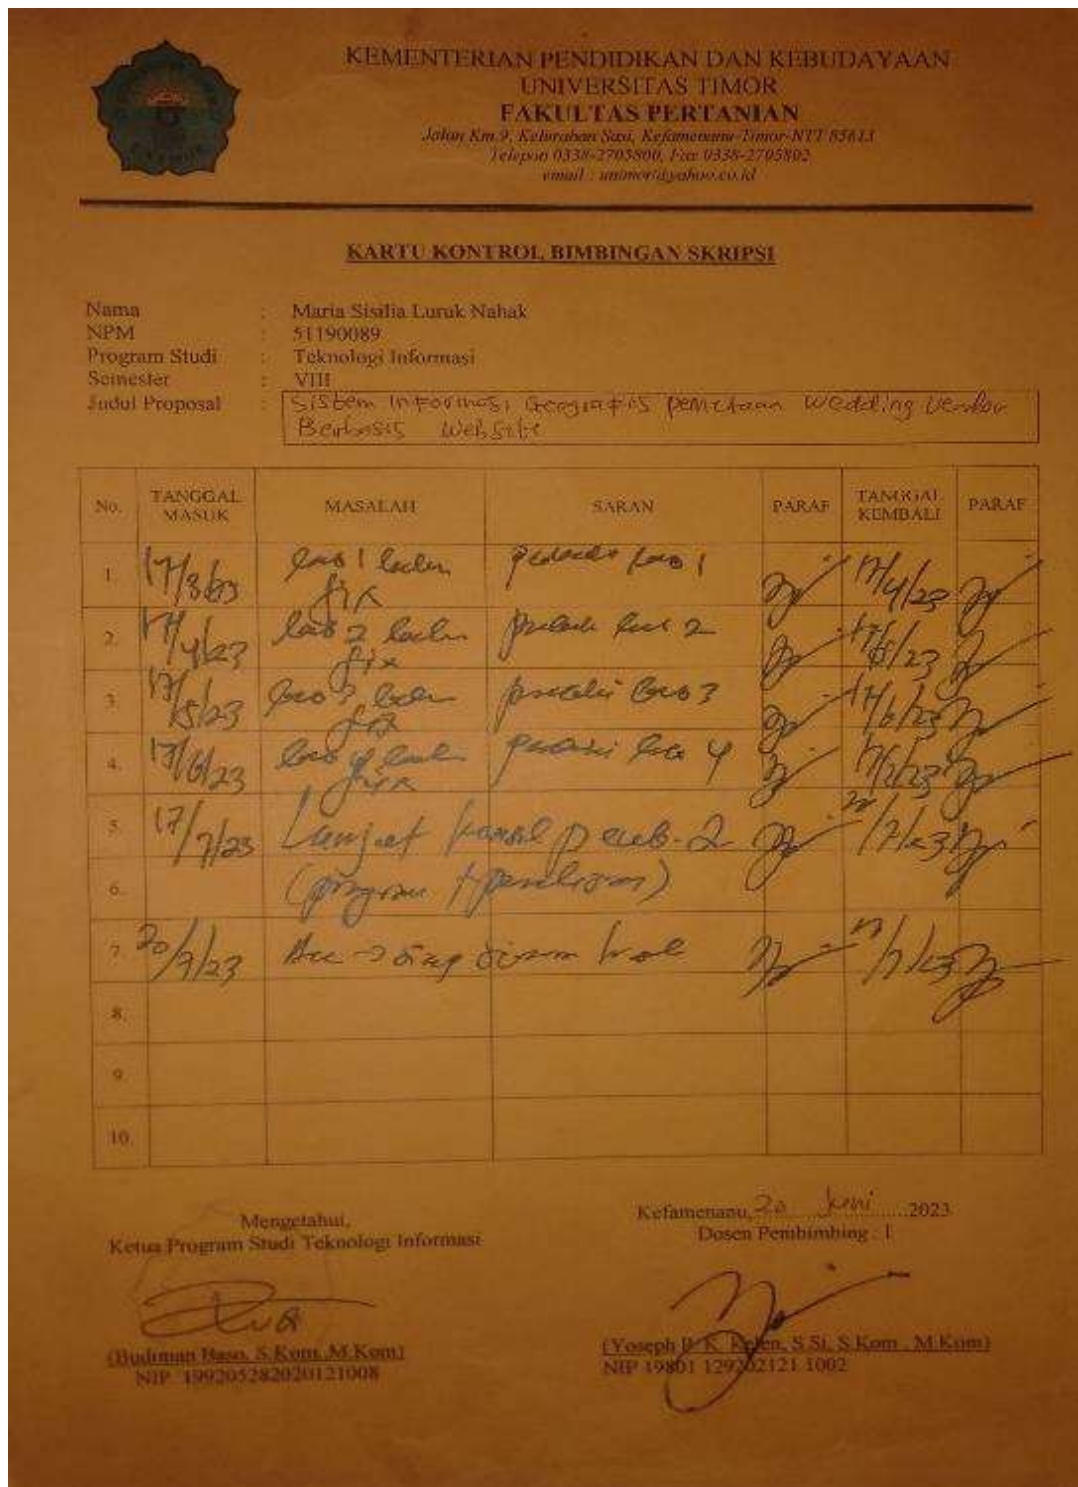 KEMENTERIAN PENDIDIKAN DAN KEBUDAYAAN
UNIVERSITAS TIMOR
FAKULTAS PERTANIAN
Jalan Km.9, Kelurahan Sasi, Kefamenanu-Timor-NTT 85613
Telepon 0338-2705800, Fax 0338-2705802
email : unimor@yahoo.co.id
KARTU KONTROL BIMBINGAN SKRIPSI
Nama : Maria Sisilia Luruk Nahak
NPM : 51190089
Program Studi : Teknologi Informasi
Semester : VIII
Judul Proposal : Sistem Informasi Geografis pemetaan Wedding Vendor
Berbasis Website
No. TANGGAL MASUK MASALAH SARAN PARAF TANGGAL KEMBALI PARAF
1. 17/3/23 bab 1 belum fix bab 1 17/4/23
2. 17/4/23 bab 2 belum fix bab 2 17/5/23
3. 17/5/23 bab 3 belum fix bab 3 17/6/23
4. 17/6/23 bab 4 belum fix bab 4
5. 17/7/23 Lanjut pemb-2
6. (program + penulisan)
7. Acc -> siap
8.
9.
10.
Kefamenanu, 20 Juni 2023
Mengetahui,
Dosen Pembimbing : I
Ketua Program Studi Teknologi Informasi
(Budiman Baso, S.Kom, M.Kom)
NIP 199205282020121008
(Yoseph P. K. Kelen, S.Si, S.Kom, M.Kom)
NIP 19801 129202121 1002